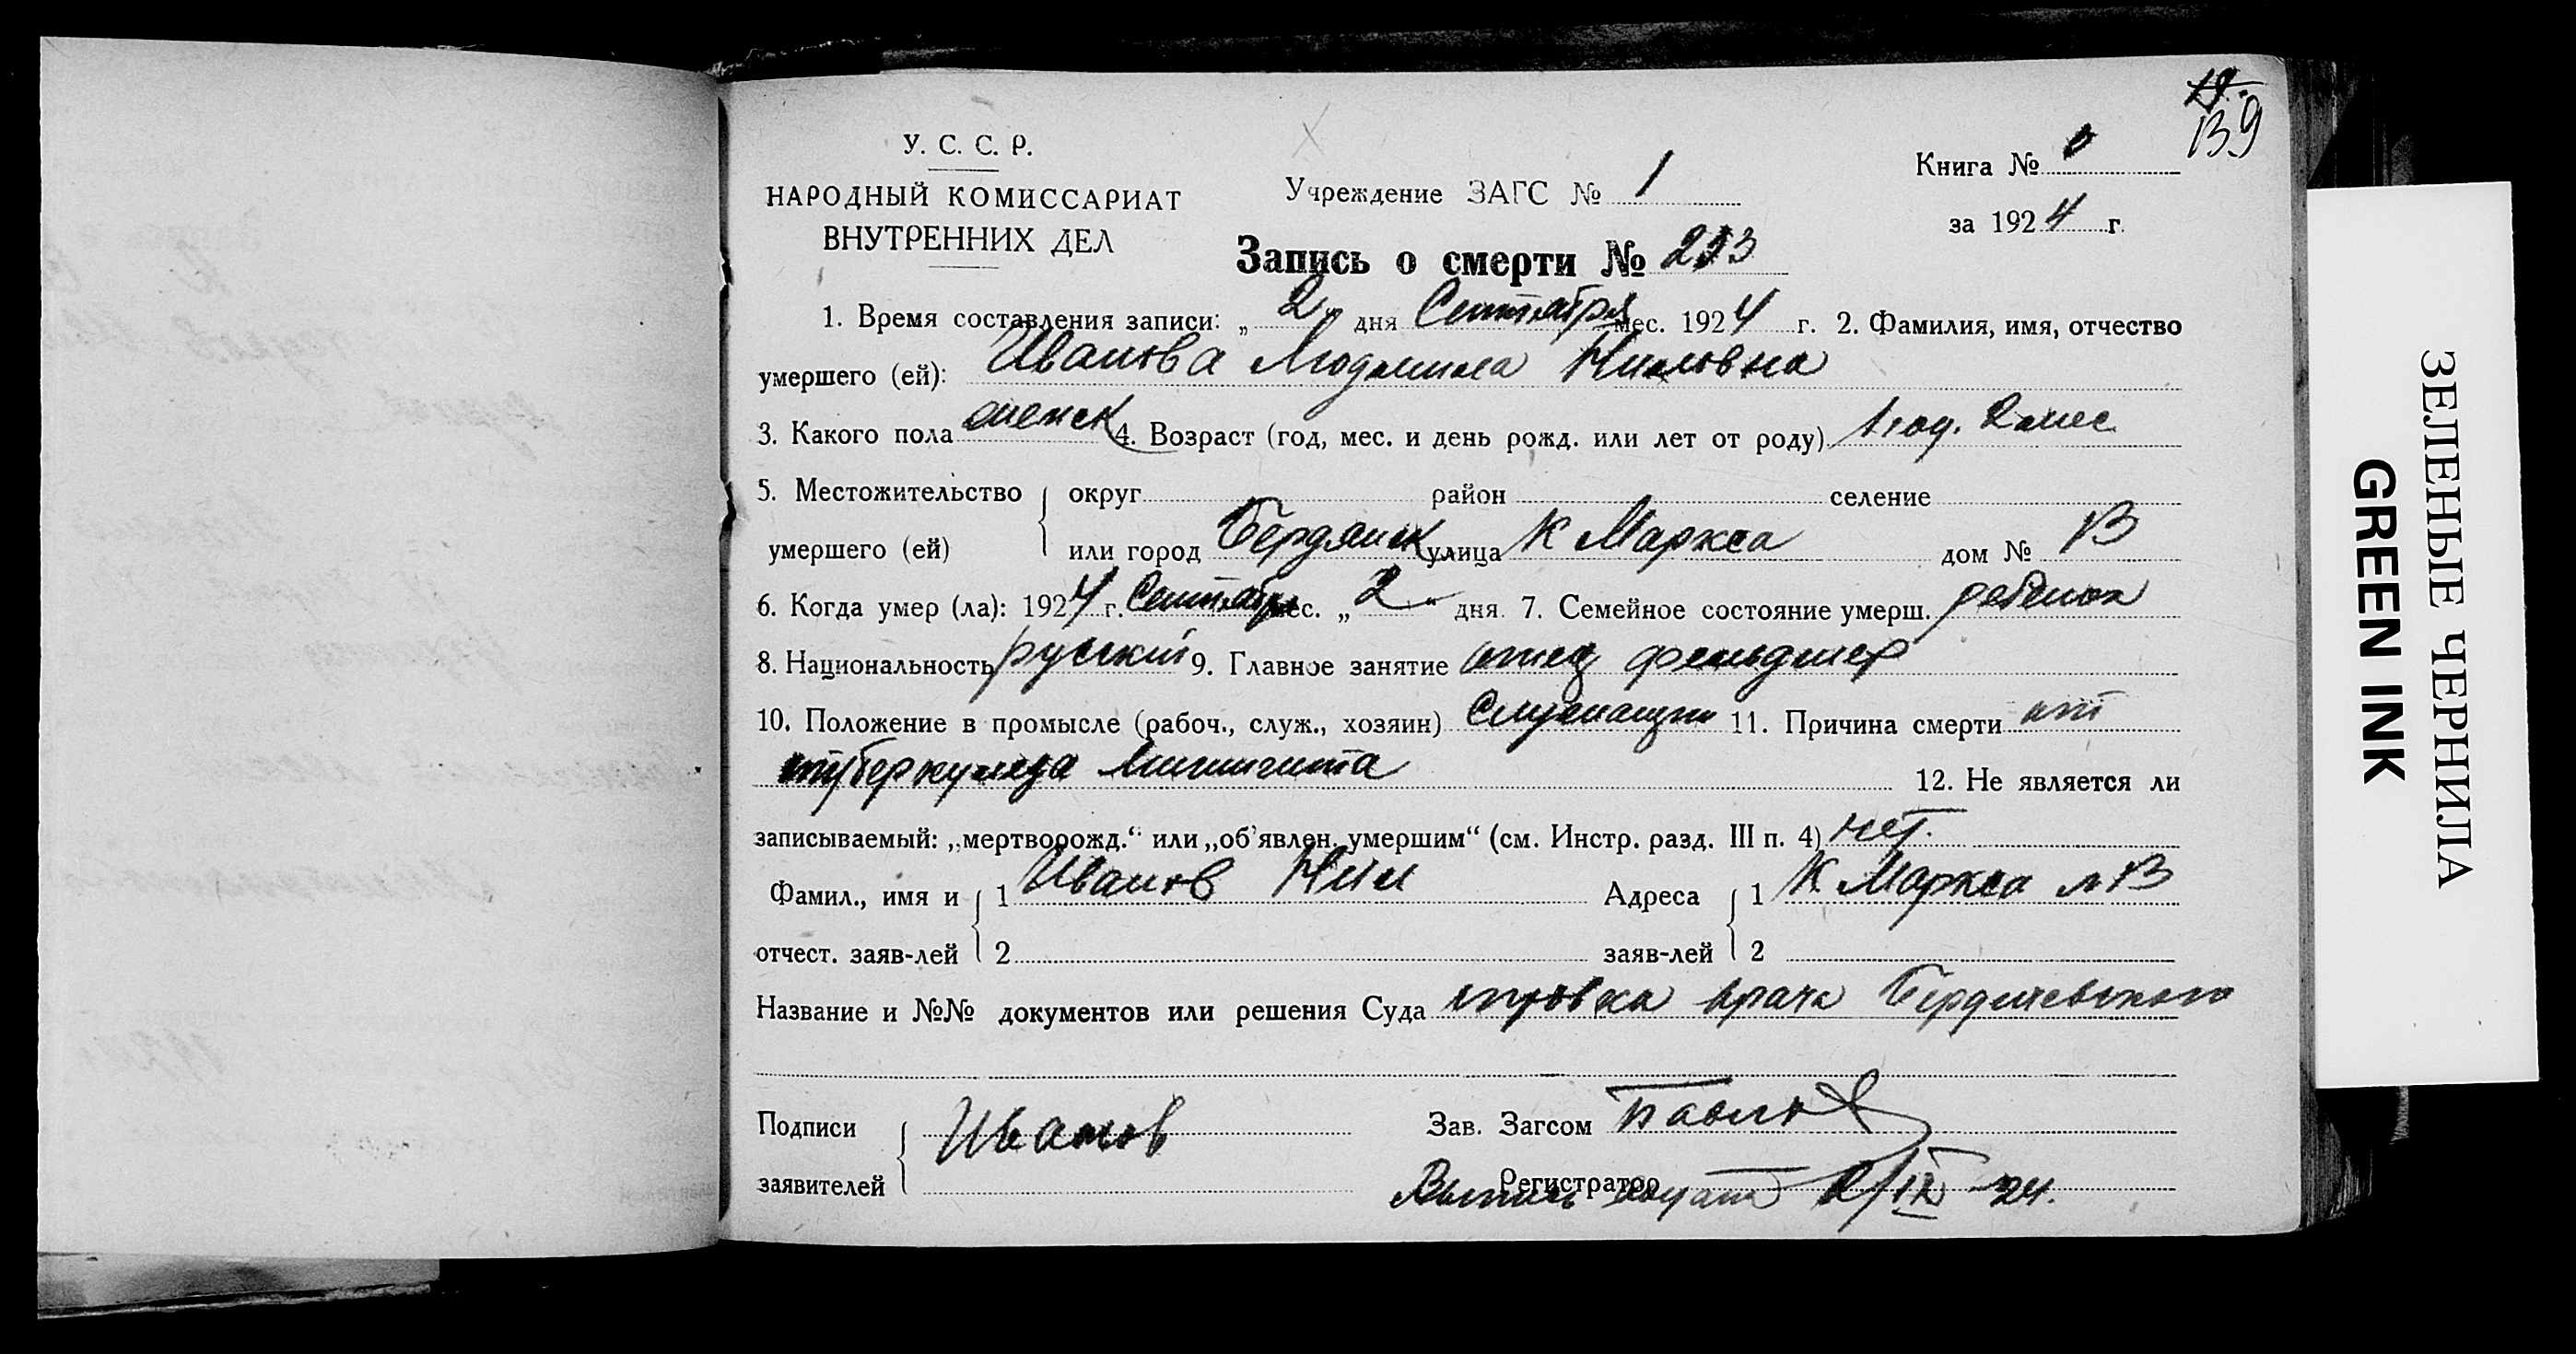 139
У. С. С. Р.
НАРОДНЫЙ КОМИССАРИАТ
ВНУТРЕННИХ ДЕЛ
Учреждение ЗАГС № 1
Книга №
за 1924 г.
Запись о смерти № 213
1. Время составления записи: „2“ дня Сентября мес. 1924 г. 2. Фамилия, имя, отчество
умершего (ей): Иванова Людмила Ниловна
3. Какого пола женск 4. Возраст (год, мес. и день рожд. или лет от роду) 1 год. 2 мес
5. Местожительство умершего (ей) { округ район селение
или город Бердянск улица К Маркса дом № 13
6. Когда умер (ла): 1924 г. Сентябр мес. „2“ дня. 7. Семейное состояние умерш. ребенок
8. Национальность русский 9. Главное занятие отец фельдшер
10. Положение в промысле (рабоч., служ., хозяин) Служащий 11. Причина смерти от
туберкулеза 12. Не является ли
записываемый: „мертворожд.“ или „об’явлен. умершим“ (см. Инстр. разд. III п. 4) нет.
Фамил., имя и отчест. заяв-лей { 1 Иванов Нил Адреса заяв-лей { 1 К. Маркса № 13
2 2
Название и №№ документов или решения Суда справка врача Бердичевского
Подписи заявителей { Иванов Зав. Загсом
Регистратор
Выпись 2/IX - 24.
ЗЕЛЕНЫЕ ЧЕРНИЛА
GREEN INK